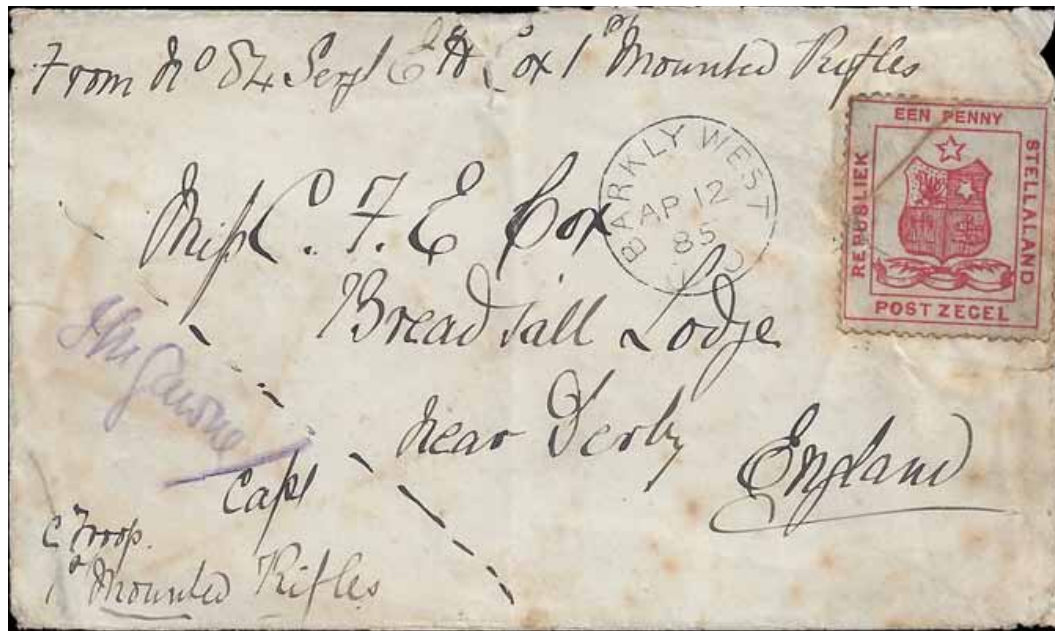 From No 84 Sergt E H Cox 1st Mounted Rifles
BARKLY WEST
AP 12
85
EEN PENNY
REPUBLIEK
STELLALAND
POST ZEGEL
Miss C. F. E Cox
Breadsall Lodge
near Derby
England
Capt
C Troop.
1st Mounted Rifles